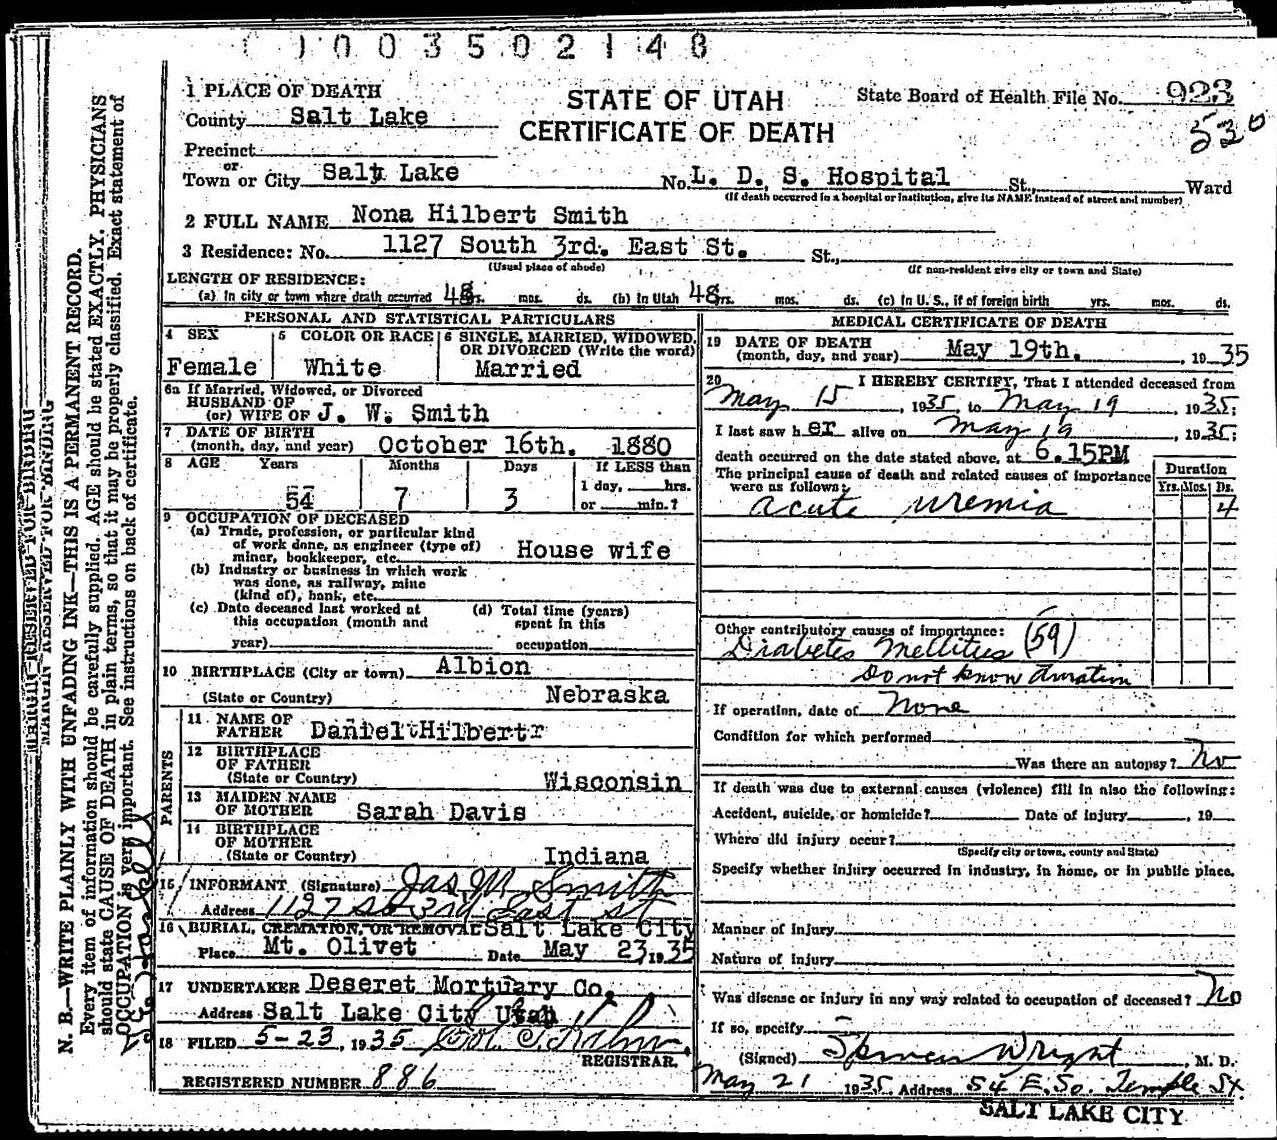 003502148
1 PLACE OF DEATH
STATE OF UTAH
CERTIFICATE OF DEATH
State Board of Health File No. 923
530
County Salt Lake
Precinct
or
Town or City Salt Lake No. L. D. S. Hospital St., Ward
(If death occurred in a hospital or institution, give its NAME instead of street and number)
2 FULL NAME Nona Hilbert Smith
3 Residence: No. 1127 South 3rd. East St. St.,
(Usual place of abode) (If non-resident give city or town and State)
LENGTH OF RESIDENCE:
(a) In city or town where death occurred 48 yrs. mos. ds. (b) In Utah 48 yrs. mos. ds. (c) In U. S., if of foreign birth yrs. mos. ds.
PERSONAL AND STATISTICAL PARTICULARS
4 SEX
Female
5 COLOR OR RACE
White
6 SINGLE, MARRIED, WIDOWED, OR DIVORCED (Write the word)
Married
6a If Married, Widowed, or Divorced
HUSBAND OF
(or) WIFE OF J. W. Smith
7 DATE OF BIRTH
(month, day, and year) October 16th. 1880
8 AGE Years Months Days If LESS than
1 day, hrs.
54 7 3 or min.?
9 OCCUPATION OF DECEASED
(a) Trade, profession, or particular kind
of work done, as engineer (type of)
miner, bookkeeper, etc. House wife
(b) Industry or business in which work
was done, as railway, mine
(kind of), bank, etc.
(c) Date deceased last worked at
this occupation (month and
year)
(d) Total time (years)
spent in this
occupation
10 BIRTHPLACE (City or town) Albion
(State or Country) Nebraska
PARENTS
11 NAME OF
FATHER Daniel Hilbert
12 BIRTHPLACE
OF FATHER
(State or Country) Wisconsin
13 MAIDEN NAME
OF MOTHER Sarah Davis
14 BIRTHPLACE
OF MOTHER
(State or Country) Indiana
15 INFORMANT (Signature) Jas. W. Smith
Address 1127 So 3rd East St
16 BURIAL, CREMATION, OR REMOVAL Salt Lake City
Place Mt. Olivet Date May 23, 1935
17 UNDERTAKER Deseret Mortuary Co.
Address Salt Lake City Utah
18 FILED 5-23, 1935
REGISTRAR.
REGISTERED NUMBER 886
MEDICAL CERTIFICATE OF DEATH
19 DATE OF DEATH
(month, day, and year) May 19th. , 1935
20 I HEREBY CERTIFY, That I attended deceased from
May 15, 1935, to May 19, 1935;
I last saw her alive on May 19, 1935;
death occurred on the date stated above, at 6.15PM
The principal cause of death and related causes of importance
were as follows:
Duration
Yrs. Mos. Ds.
acute uremia 4
Other contributory causes of importance: (59)
Diabetes Mellitus
Do not know duration
If operation, date of None
Condition for which performed
Was there an autopsy? No
If death was due to external causes (violence) fill in also the following:
Accident, suicide, or homicide? Date of injury , 19
Where did injury occur?
(Specify city or town, county and State)
Specify whether injury occurred in industry, in home, or in public place.
Manner of injury
Nature of injury
Was disease or injury in any way related to occupation of deceased? No
If so, specify
(Signed) Spencer Wright, M. D.
May 21 1935 Address 54 E. So. Temple St.
SALT LAKE CITY
MARGIN RESERVED FOR BINDING
N. B.—WRITE PLAINLY WITH UNFADING INK—THIS IS A PERMANENT RECORD.
Every item of information should be carefully supplied. AGE should be stated EXACTLY. PHYSICIANS
should state CAUSE OF DEATH in plain terms, so that it may be properly classified. Exact statement of
OCCUPATION is very important. See instructions on back of certificate.